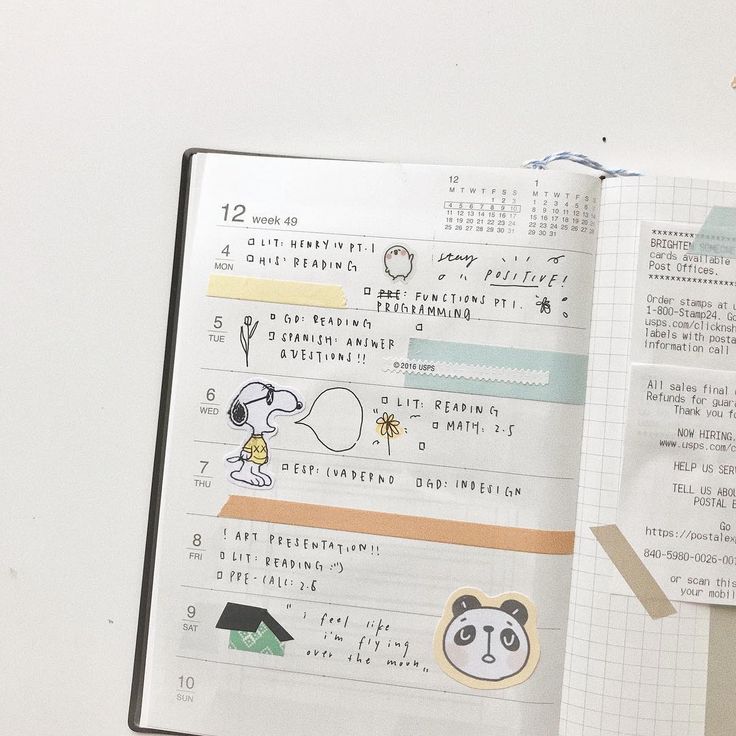 12 week 49
12
M T W T F S S
1 2 3
4 5 6 7 8 9 10
11 12 13 14 15 16 17
18 19 20 21 22 23 24
25 26 27 28 29 30 31
1
M T W T F S S
1 2 3 4 5 6 7
8 9 10 11 12 13 14
15 16 17 18 19 20 21
22 23 24 25 26 27 28
29 30 31
4
MON
LIT: HENRY IV PT. 1
HIS: READING
stay
POSITIVE!
PRE: FUNCTIONS PT 1.
PROGRAMMING
5
TUE
GD: READING
SPANISH: ANSWER
QUESTIONS!!
©2016 USPS
6
WED
LIT: READING
MATH: 2.5
XX
7
THU
ESP: CUADERNO
GD: INDESIGN
8
FRI
! ART PRESENTATION!!
LIT: READING :")
PRE-CALC: 2.6
9
SAT
"i feel like
i'm flying
over the moon"
10
SUN
xxxxxxxxxxxxxxx
BRIGHTEN SOMEONE
cards available
Post Offices.
xxxxxxxxxxxxxxx
Order stamps at u
1-800-Stamp24. Go
usps.com/clicknsh
labels with posta
information call
All sales final o
Refunds for guara
Thank you fo
NOW HIRING.
www.usps.com/c
HELP US SERV
TELL US ABOU
POSTAL E
Go
https://postalexp
840-5980-0026-001
or scan this
your mobil